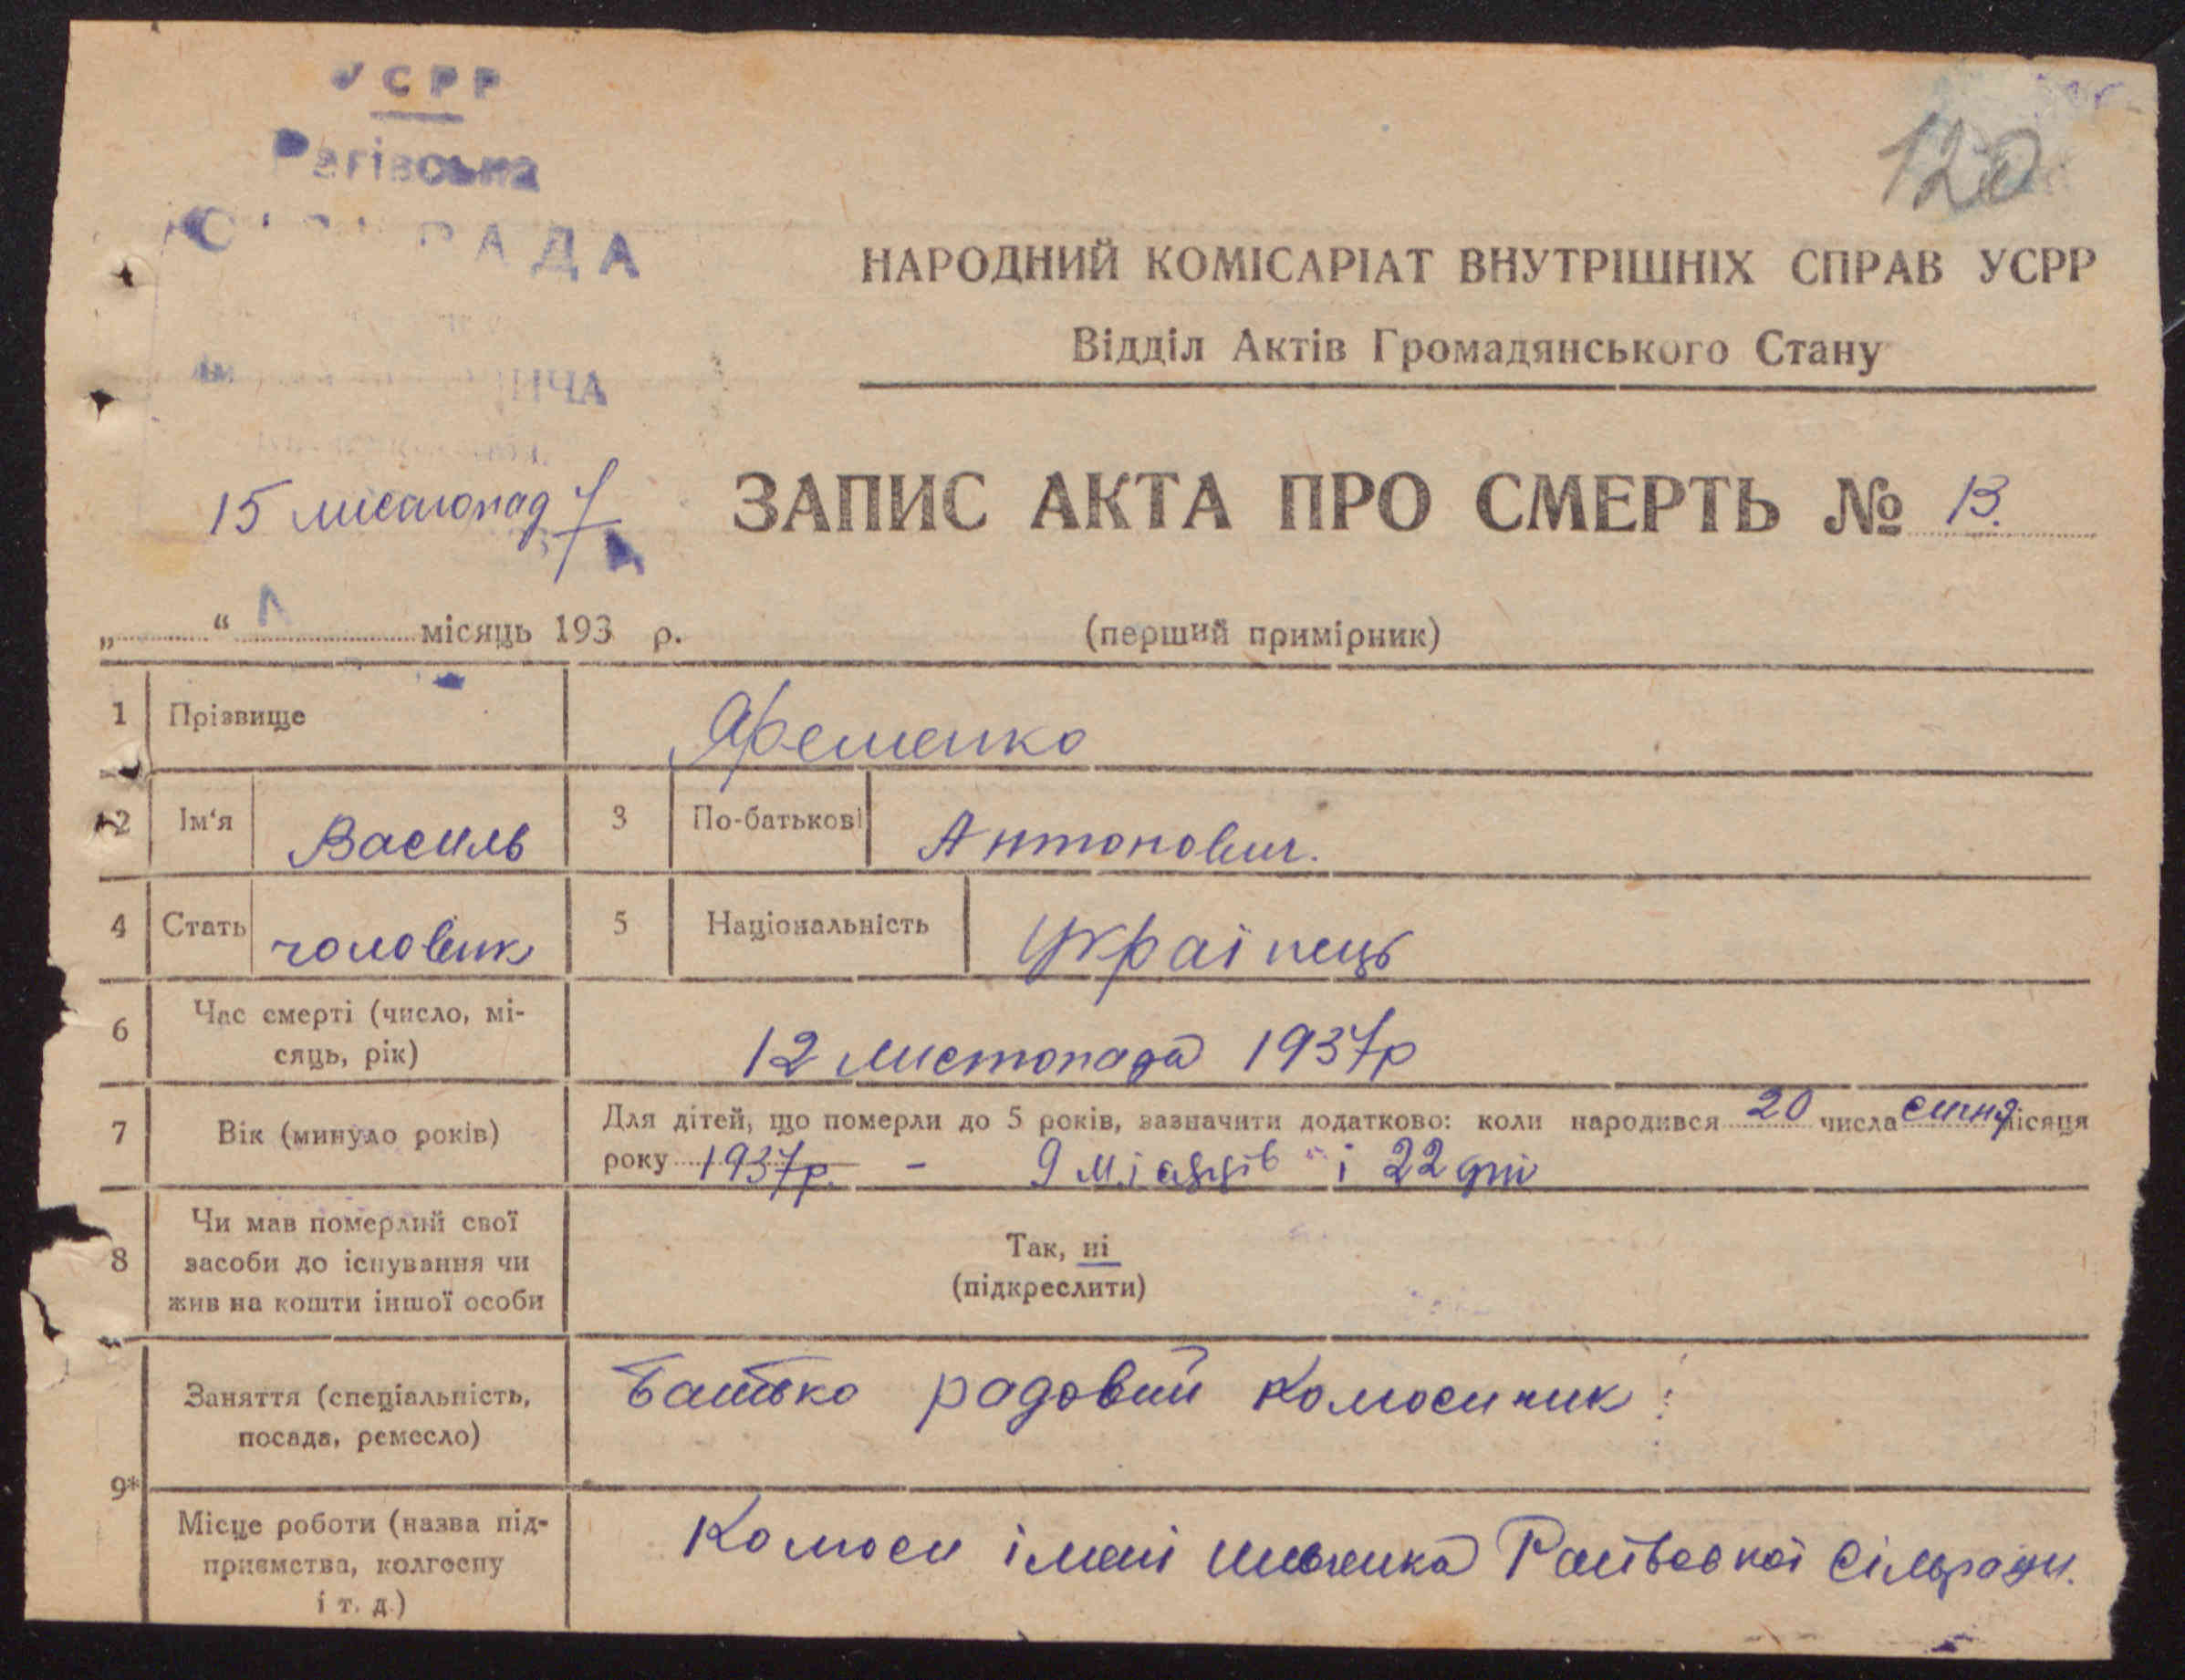 УСРР
РАДА
120
НАРОДНИЙ КОМІСАРІАТ ВНУТРІШНІХ СПРАВ УСРР
Відділ Актів Громадянського Стану
15 листопад 7
ЗАПИС АКТА ПРО СМЕРТЬ № 13.
„ “ місяць 193 р.
(перший примірник)
1 Прізвище Яременко
2 Ім'я Василь 3 По-батькові Антонович.
4 Стать чоловік 5 Національність Українець
6 Час смерті (число, мі-
сяць, рік) 12 листопада 1937р
7 Вік (минуло років) Для дітей, що померли до 5 років, зазначити додатково: коли народився 20 числа січня місяця
року 1937р. - 9 місяців і 22 дні
8 Чи мав померлий свої
засоби до існування чи
жив на кошти іншої особи
Так, ні
(підкреслити)
9* Заняття (спеціальність,
посада, ремесло)
Батько радовий колгоспник
Місце роботи (назва під-
приємства, колгоспу
і т. д.)
Колгосп імені Шевченка сільради.